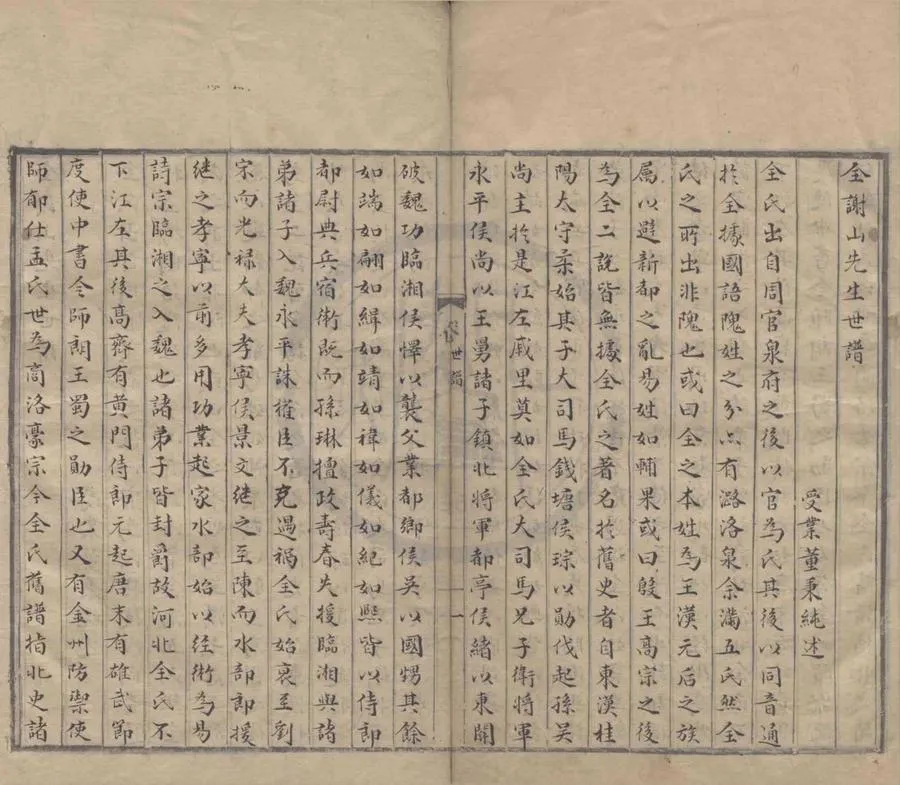 全謝山先生世譜
受業董秉純述
全氏出自周官泉府之後以官為氏其後以同音通
於全據國語隗姓之分亦有潞洛泉余滿五氏然全
氏之所出非隗也或曰全之本姓為王漢元后之族
属以避新都之亂易姓如輔果或曰殷王高宗之後
為全二說皆無據全氏之著名於舊史者自東漢桂
陽太守柔始其子大司馬錢塘侯琮以勛伐起孫吴
尚主於是江左戚里莫如全氏大司馬兄子衛將軍
永平侯尚以王舅諸子鎮北將軍都亭侯緒以東關
世譜
一
破魏功臨湘侯懌以襲父業都鄉侯吴以國甥其餘
如端如翩如緝如靖如禕如儀如紀如熙皆以侍郎
都尉典兵宿衛既而孫琳擅政壽春失援臨湘與諸
弟諸子入魏永平誅權臣不克遇禍全氏始衰至劉
宋而光禄大夫孝寧侯景文継之至陳而水部郎援
継之孝寧以前多用功業起家水部始以経術為易
詩宗臨湘之入魏也諸弟子皆封爵故河北全氏不
下江左其後髙齊有黄門侍郎元起唐末有雄武節
度使中書令師朗王蜀之勛臣也又有金州防禦使
師郁仕孟氏世為商洛豪宗今全氏舊譜指北史諸